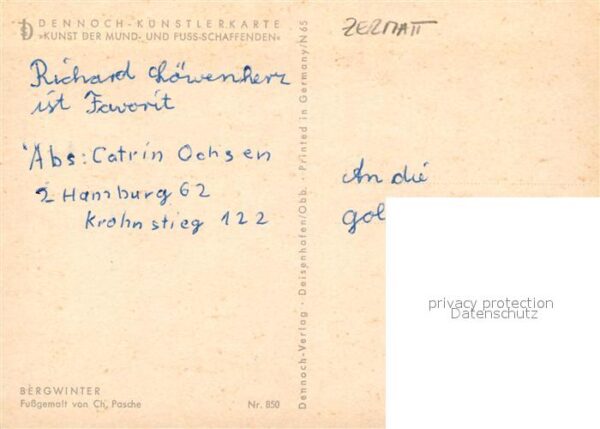 DENNOCH-KÜNSTLERKARTE
»KUNST DER MUND- UND FUSS-SCHAFFENDEN«
Richard Löwenherz
ist Favorit
Abs: Catrin Ochsen
2 Hamburg 62
Krohnstieg 122
BERGWINTER
Fußgemalt von Ch. Pasche
Nr. 850
Dennoch-Verlag · Deisenhofen/Obb. · Printed in Germany/N65
ZERMATT
An die
gol
privacy protection
Datenschutz